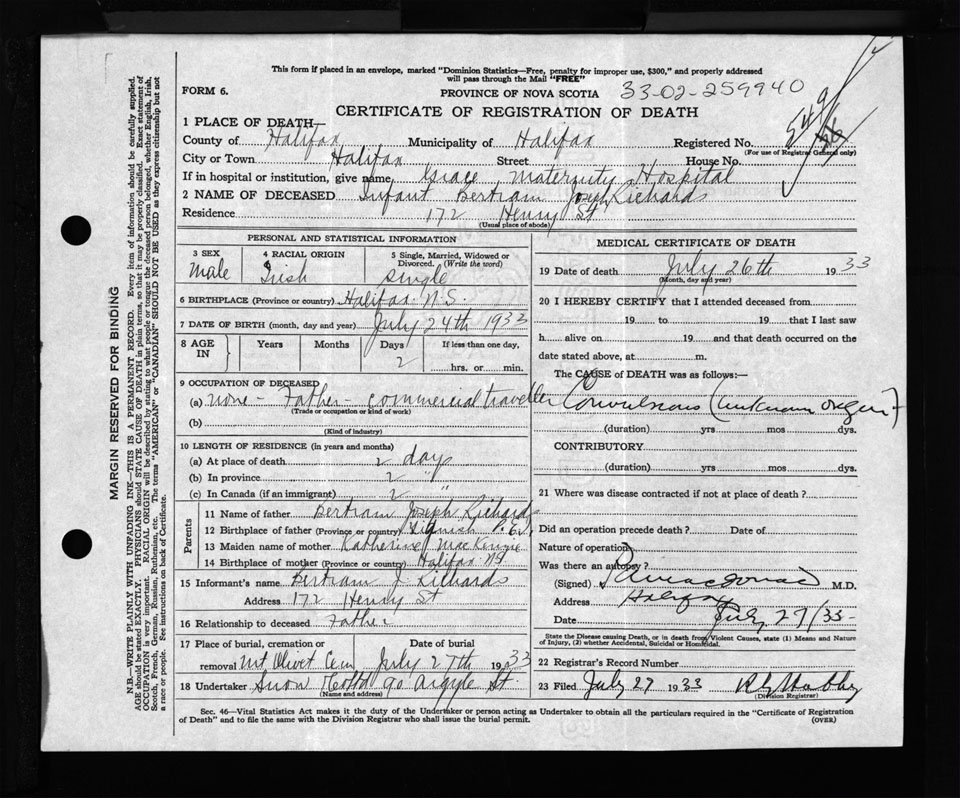 This form if placed in an envelope, marked "Dominion Statistics—Free, penalty for improper use, $300," and properly addressed
will pass through the Mail "FREE"
FORM 6.
PROVINCE OF NOVA SCOTIA 33-02-259940
CERTIFICATE OF REGISTRATION OF DEATH
1 PLACE OF DEATH—
County of Halifax Municipality of Halifax Registered No. 549
(For use of Registrar General only)
City or Town Halifax Street House No.
If in hospital or institution, give name, Grace Maternity Hospital
2 NAME OF DECEASED Infant Bertram Joseph Richards
Residence 172 Henry St
(Usual place of abode)
PERSONAL AND STATISTICAL INFORMATION
3 SEX 4 RACIAL ORIGIN 5 Single, Married, Widowed or
Divorced. (Write the word)
Male Irish single
6 BIRTHPLACE (Province or country) Halifax N.S.
7 DATE OF BIRTH (month, day and year) July 24th 1933
8 AGE IN Years Months Days If less than one day,
2 hrs. or min.
9 OCCUPATION OF DECEASED
(a) none - Father - commercial traveller
(Trade or occupation or kind of work)
(b)
(Kind of industry)
10 LENGTH OF RESIDENCE (in years and months)
(a) At place of death 2 day
(b) In province 2 "
(c) In Canada (if an immigrant) 2 "
Parents
11 Name of father Bertram Joseph Richards
12 Birthplace of father (Province or country) Tignish P.E.I.
13 Maiden name of mother Katherine MacKenzie
14 Birthplace of mother (Province or country) Halifax NS
15 Informant's name Bertram J. Richards
Address 172 Henry St
16 Relationship to deceased Father
17 Place of burial, cremation or Date of burial
removal Mt Olivet Cem July 27th 1933
18 Undertaker Snow 90 Argyle St
(Name and address)
MEDICAL CERTIFICATE OF DEATH
19 Date of death July 26th 1933
(Month, day and year)
20 I HEREBY CERTIFY that I attended deceased from
19 to 19 that I last saw
h alive on 19 and that death occurred on the
date stated above, at m.
The CAUSE of DEATH was as follows:—
Convulsions (unknown origin)
(duration) yrs mos dys.
CONTRIBUTORY
(duration) yrs mos dys.
21 Where was disease contracted if not at place of death?
Did an operation precede death? Date of
Nature of operation
Was there an autopsy?
(Signed) M.D.
Address Halifax
Date July 27/33
State the Disease causing Death, or in death from Violent Causes, state (1) Means and Nature
of Injury, (2) whether Accidental, Suicidal or Homicidal.
22 Registrar's Record Number
23 Filed July 27 1933
(Division Registrar)
Sec. 46—Vital Statistics Act makes it the duty of the Undertaker or person acting as Undertaker to obtain all the particulars required in the "Certificate of Registration
of Death" and to file the same with the Division Registrar who shall issue the burial permit. (OVER)
MARGIN RESERVED FOR BINDING
N.B.—WRITE PLAINLY WITH UNFADING INK—THIS IS A PERMANENT RECORD. Every item of information should be carefully supplied.
AGE should be stated EXACTLY. PHYSICIANS should STATE CAUSE OF DEATH in plain terms, so that it may be properly classified. Exact statement of
OCCUPATION is very important. RACIAL ORIGIN will be described by stating to what people or tongue the deceased person belonged, whether English, Irish,
Scotch, French, German, Russian, Ruthenian, etc. The terms "AMERICAN" or "CANADIAN" SHOULD NOT BE USED as they express citizenship but not
a race or people. See instructions on back of Certificate.